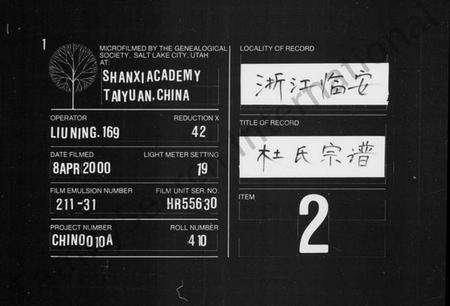 1
MICROFILMED BY THE GENEALOGICAL
SOCIETY, SALT LAKE CITY, UTAH
AT:
SHANXI ACADEMY
TAIYUAN, CHINA
OPERATOR REDUCTION X
LIU NING. 169 42
DATE FILMED LIGHT METER SETTING
8 APR 2000 19
FILM EMULSION NUMBER FILM UNIT SER. NO.
211-31 HR55630
PROJECT NUMBER ROLL NUMBER
CHIN0010A 410
LOCALITY OF RECORD
浙江临安
TITLE OF RECORD
杜氏宗谱
ITEM
2